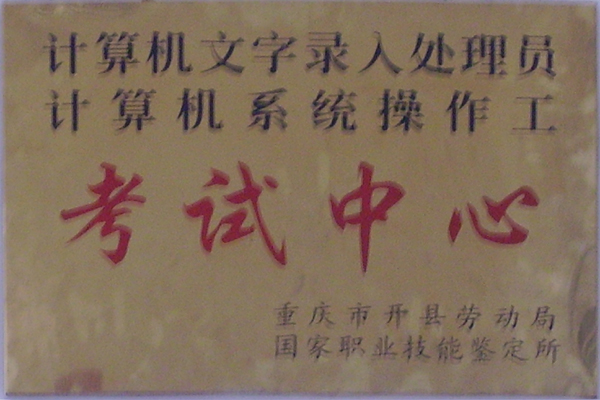 计算机文字录入处理员
计算机系统操作工
考试中心
重庆市开县劳动局
国家职业技能鉴定所